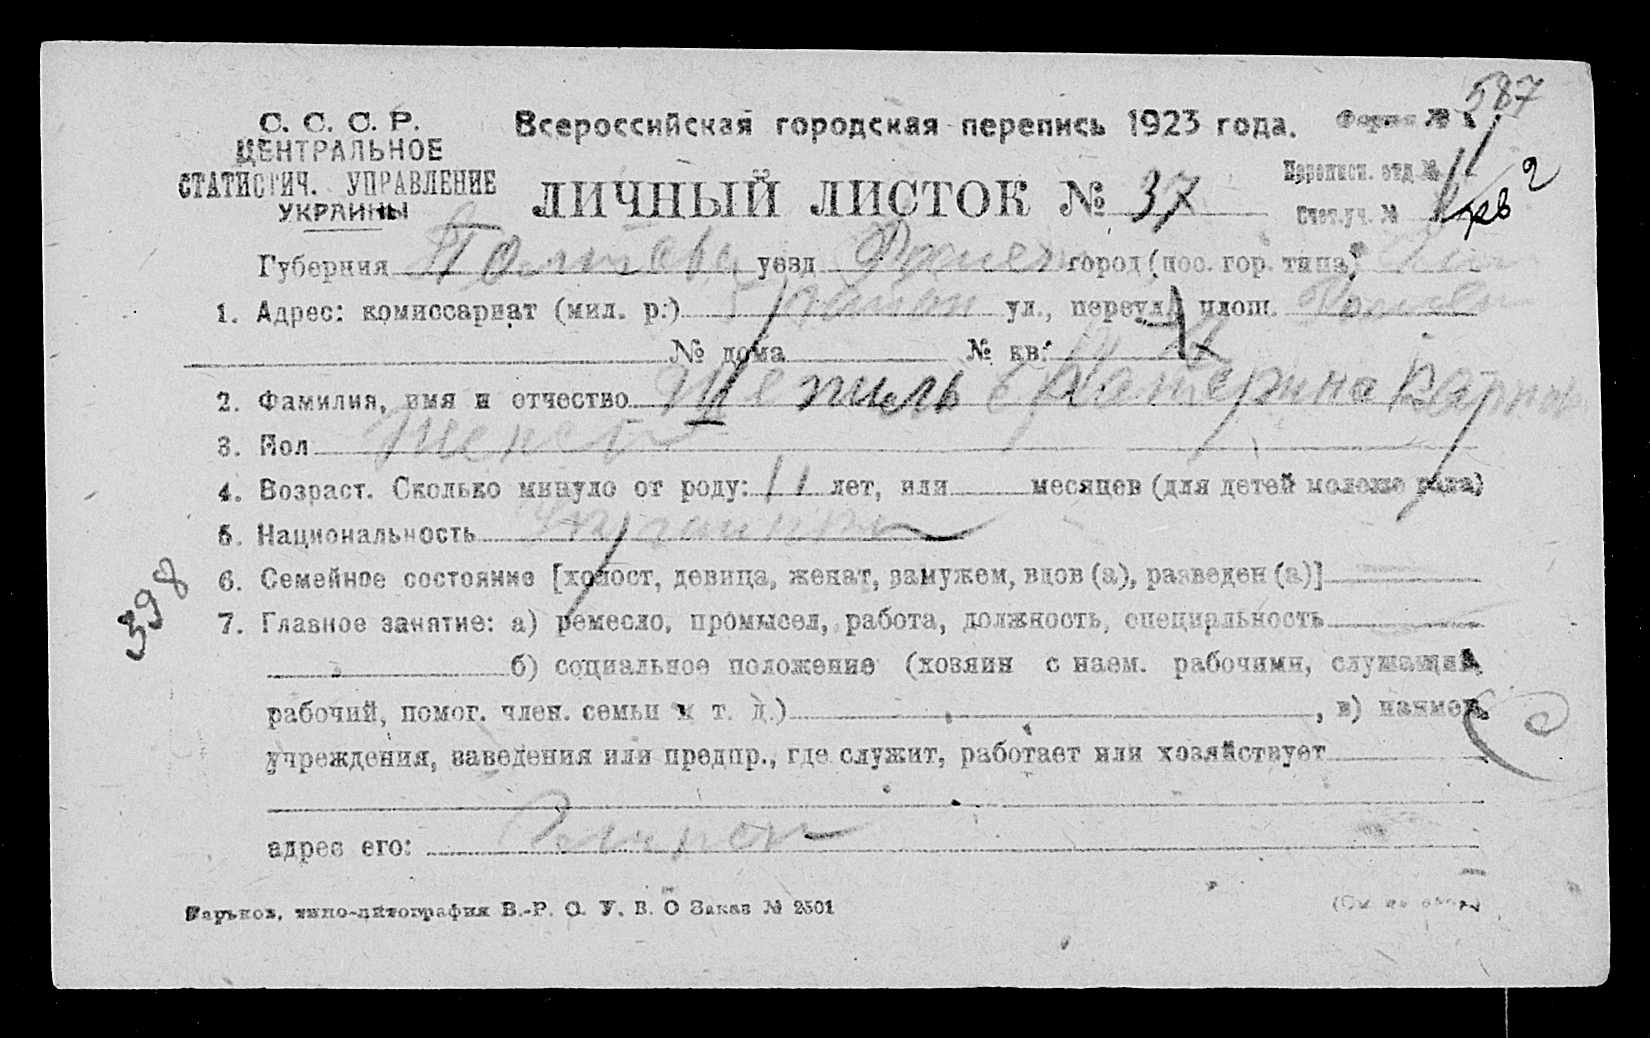 587
С. С. С. Р.
ЦЕНТРАЛЬНОЕ
СТАТИСТИЧ. УПРАВЛЕНИЕ
УКРАИНЫ
Всероссийская городская перепись 1923 года.
Форма №
ЛИЧНЫЙ ЛИСТОК № 37
Переписн. отд №
Счет.уч. №
2
Губерния Полтава уезд город (пос. гор. типа)
1. Адрес: комиссариат (мил. р.) ул., переул., площ.
№ дома № кв.
2. Фамилия, имя и отчество Шепиль Катерина
3. Пол Женск
4. Возраст. Сколько минуло от роду: 11 лет, или месяцев (для детей моложе года)
5. Национальность
6. Семейное состояние [холост, девица, женат, замужем, вдов (а), разведен (а)]
398
7. Главное занятие: а) ремесло, промысел, работа, должность, специальность
б) социальное положение (хозяин с наем. рабочими, служащий,
рабочий, помог. член. семьи и т. д.) , в) наимен.
учреждения, заведения или предпр., где служит, работает или хозяйствует
адрес его:
Харьков, типо-литография В.-Р. О. У. В. О Заказ № 2501